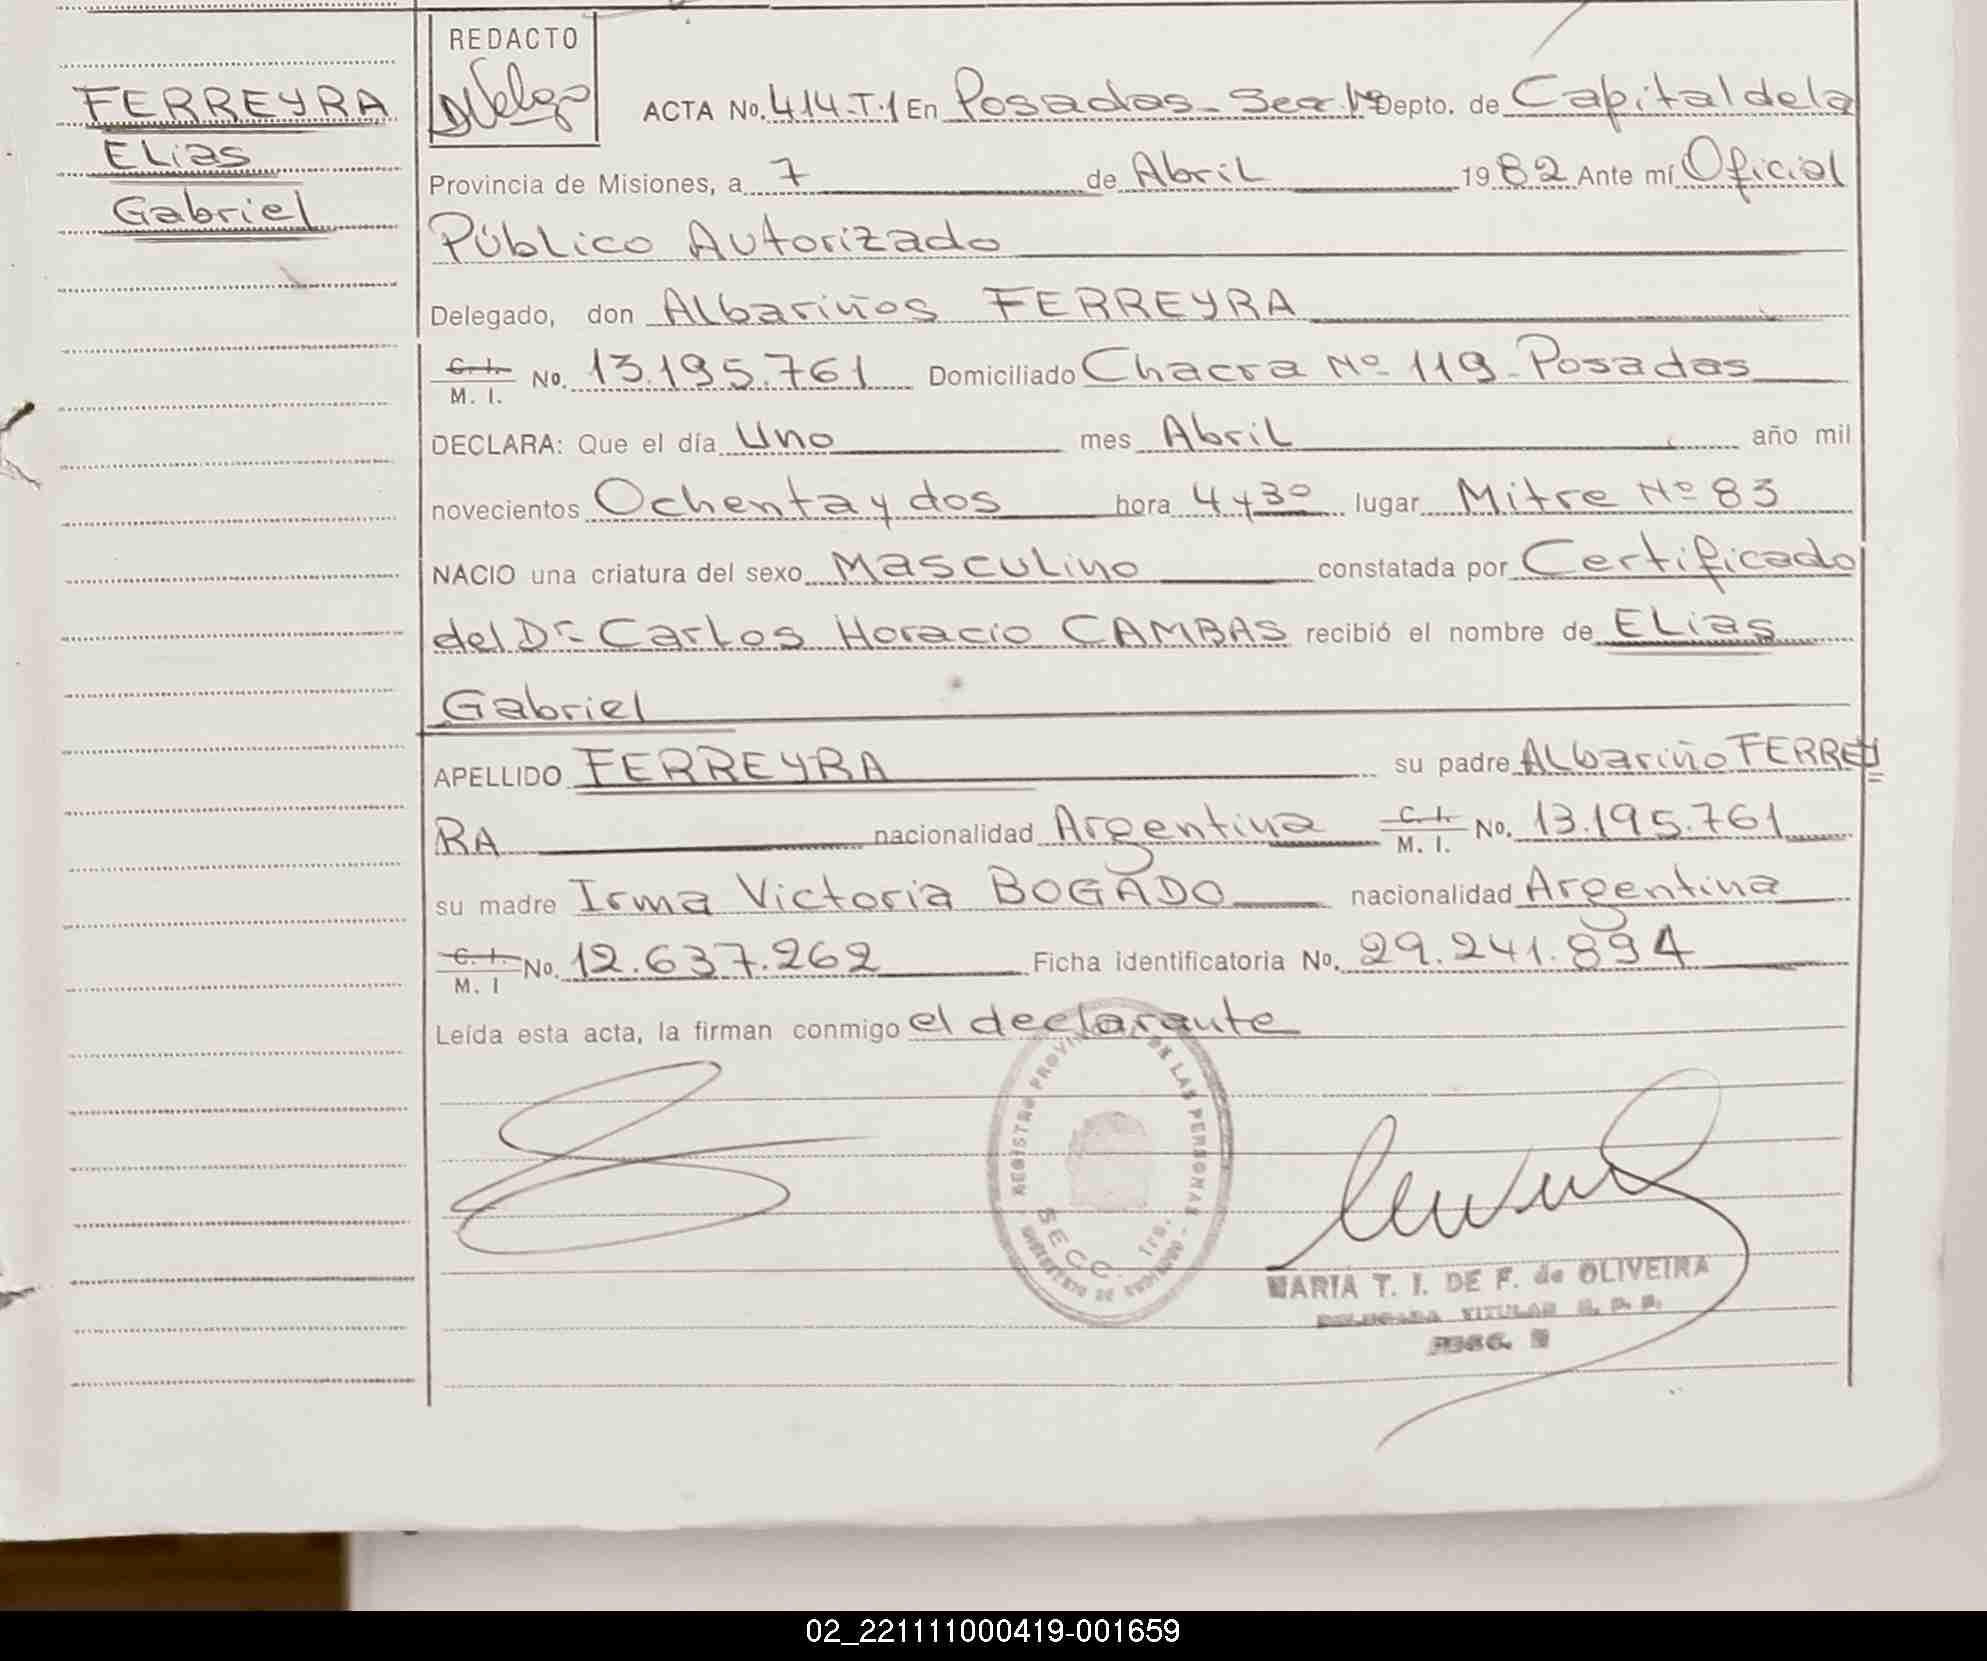 REDACTO
FERREYRA
Elias
Gabriel
ACTA No. 414-T.1 En Posadas - Secc. 1ra Depto. de Capital de la
Provincia de Misiones, a 7 de Abril 1982 Ante mí Oficial
Público Autorizado
Delegado, don Albariños FERREYRA
C. I. M. I. No. 13.195.761 Domiciliado Chacra Nº 119 - Posadas
DECLARA: Que el día Uno mes Abril año mil
novecientos Ochenta y dos hora 4 y 30 lugar Mitre Nº 83
NACIO una criatura del sexo Masculino constatada por Certificado
del Dr. Carlos Horacio CAMBAS recibió el nombre de Elias
Gabriel
APELLIDO FERREYRA su padre Albariño FERREY
RA nacionalidad Argentina C. I. M. I. No. 13.195.761
su madre Irma Victoria BOGADO nacionalidad Argentina
C. I. M. I No. 12.637.262 Ficha identificatoria No. 29.241.894
Leída esta acta, la firman conmigo el declarante
REGISTRO DE LAS PERSONAS
SECC. 1ra.
MARIA T. I. DE F. de OLIVEIRA
TITULAR
02_221111000419-001659